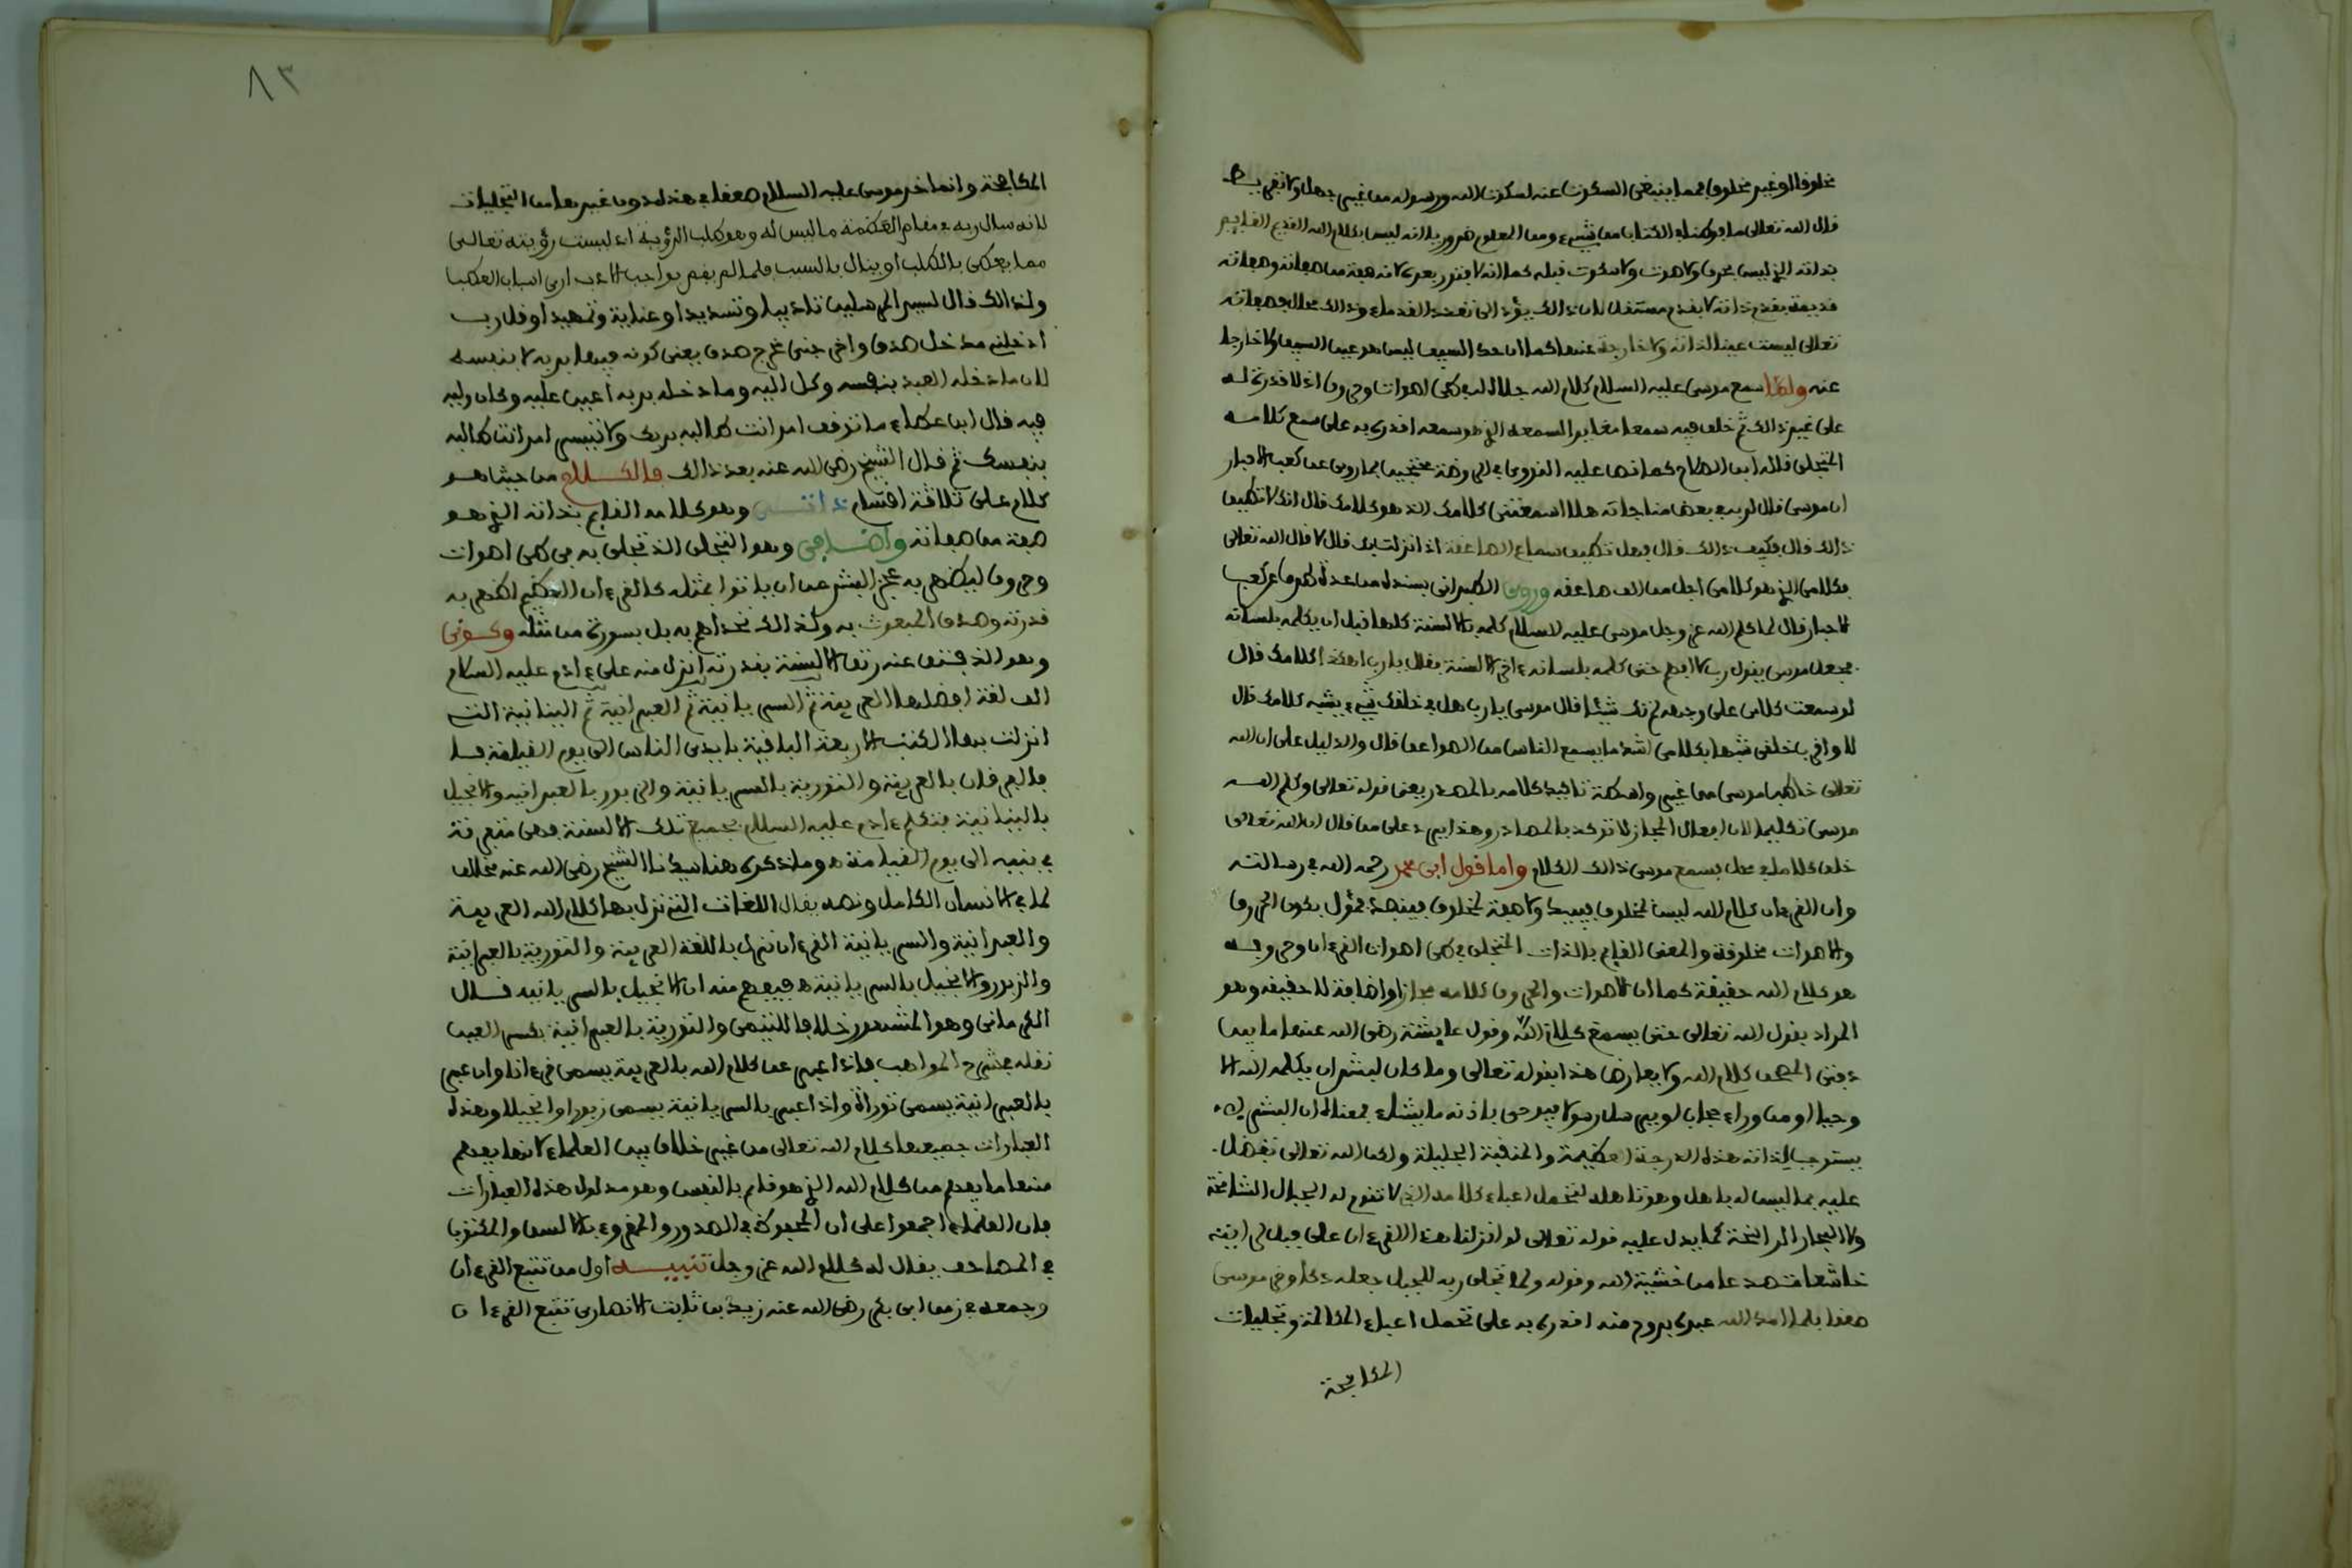 مخلوقا او غير مخلوق مما ينبغي السكوت عنه لسكوت الله ورسوله من غير جهل ولا تفريط
قال الله تعالى ما فرطنا في الكتاب من شيء ومن المعلوم ضرورة انه ليس كلام الله القديم القايم
بذاته الذي ليس بحرف ولا صوت ولا سكوت قبله كما انه لا فتور بعده لانه صفة من صفاته وصفاته
قديمة بقدم ذاته لا بقدم مستقل لان ذالك يؤدي الى تعدد القدماء وذالك محال وصفاته
تعالى ليست عين الذات ولا خارجة عنها كما ان حد السيف ليس هو عين السيف ولا خارجا
عنه ولما سمع موسى عليه السلام كلام الله جل جلاله في طي اصوات وحروف اذ لا قدرة له
على غير ذالك ثم خلق فيه سمعا مغايرا لسمعه الذي هو سمعه اقدره به على سمع كلامه
المتجلي قاله ابن الحاج كما نص عليه القزويني في الروضة محتجين بما روي عن كعب الاحبار
ان موسى قال لربه في بعض مناجاته هل اسمعتني كلامك الذي هو كلامك قال انك لا تطيق
ذالك قال فكيف ذالك قال فهل تطيق سماع الصاعقة اذا نزلت بك قال لا قال الله تعالى
فكلامي الذي هو كلامي اجل من الف صاعقة وروى الطبراني بسنده من عدة طرق عن كعب
الاحبار قال لما كلم الله عز وجل موسى عليه السلام كلمه بالالسنة كلها قبل ان يكلمه بلسانه
فجعل موسى يقول رب لا افهم حتى كلمه بلسانه ءاخر الالسنة فقال يا رب اهكذا كلامك قال
لو سمعت كلامي على وجهه لم تك شيئا قال موسى يا رب هل في خلقك شيء يشبه كلامك قال
لا واقرب خلقي شبها بكلامي اشد ما يسمع الناس من الصواعق قال والدليل على ان الله
تعالى خاطب موسى من غير واسطة تاكيد كلامه بالمصدر يعني قوله تعالى وكلم الله
موسى تكليما لان افعال المجاز لا توكد بالمصادر وهذا يرد على من قال ان الله تعالى
خلق كلاما في محل يسمع موسى ذالك الكلام واما قول ابي محمد رحمه الله في رسالته
وان القرءان كلام الله ليس بمخلوق فيبيد ولا صفة لمخلوق فينفد فمؤول بكون الحروف
والاصوات مخلوقة والمعنى القايم بالذات المتجلي في طي اصوات القرءان وحروفه
هو كلام الله حقيقة كما ان الاصوات والحروف كلامه مجازا واضافة لا حقيقة وهو
المراد بقول الله تعالى حتى يسمع كلام الله وقول عايشة رضي الله عنها ما بين
دفتي المصحف كلام الله ولا يعارض هذا بقوله تعالى وما كان لبشر ان يكلمه الله الا
وحيا او من وراء حجاب او يرسل رسولا فيوحي باذنه ما يشاء فمعناه ان البشر لا
يستوجب لذاته هذه الدرجة العظيمة والمنقبة الجليلة ولكن الله تعالى تفضل
عليه بما ليس له باهل وهو تاهله لتحمل اعباء كلامه الذي لا تقوم له الجبال الشامخة
ولا البحار الزاخرة كما يدل عليه قوله تعالى لو انزلنا هذا القرءان على جبل لرايته
خاشعا متصدعا من خشية الله وقوله ولما تجلى ربه للجبل جعله دكا وخر موسى
صعقا فلما امد الله عبده بروح منه اقدره به على تحمل اعباء المكالمة وتجليات
المكافحة
٨٣
المكافحة وانما خر موسى عليه السلام صعقا في هذه دون غيرها من التجليات
لانه سال ربه في مقام العظمة ما ليس له وهو طلب الرؤية اذ ليست رؤيته تعالى
مما يعطى بالطلب او ينال بالسبب فلما لم يقم بواجب الادب ارى اسباب العطب
ولذالك قال لسيد المرسلين تاديبا وتسديدا وعناية وتمهيدا وقل رب
ادخلني مدخل صدق واخرجني مخرج صدق يعني كونه فيها بربه لا بنفسه
لان ما دخله العبد بنفسه وكل اليه وما دخله بربه اعين عليه وكان وليه
فيه قال ابن عطاء ما توقف امر انت طالبه بربك ولا تيسر امر انت طالبه
بنفسك ثم قال الشيخ رضي الله عنه بعد ذالك فالكلام من حيث هو
كلام على ثلاثة اقسام ذاتي وهو كلامه القايم بذاته الذي هو
صفة من صفاته واضافي وهو التجلي الذي تجلى به في طي اصوات
وحروف ليظهر به عجز البشر عن ان ياتوا بمثله كالقرءان العظيم اظهر به
قدرته وصدق المبعوث به وكذالك تحداهم به بل بسورة من مثله وكوني
وهو الذي فتق عنه رتق الالسنة بقدرته انزل منه على ءادم عليه السلام
الف لغة افضلها العربية ثم السريانية ثم العبرانية ثم اليونانية التي
انزلت بها الكتب الاربعة الباقية بايدي الناس الى يوم القيامة
فالفرقان بالعربية والتورية بالسريانية والزبور بالعبرانية والانجيل
باليونانية فتكلم ءادم عليه السلام بجميع تلك الالسنة فهي متفرقة
في بنيه الى يوم القيامة وما ذكره هنا سيدنا الشيخ رضي الله عنه مخالف
لما في الانسان الكامل ونصه يقال اللغات التي نزل بها كلام الله العربية
والعبرانية والسريانية القرءان نزل باللغة العربية والتورية بالعبرانية
والزبور والانجيل بالسريانية فيفهم منه ان الانجيل بالسريانية قال
الكرماني وهو المشهور خلافا للتيمي والتورية بالعبرانية بكسر العين
نقله في شرح المواهب فاذا عبر عن كلام الله بالعربية يسمى قرءانا وان عبر
بالعبرانية يسمى توراة واذا عبر بالسريانية يسمى زبورا وانجيلا وهذه
العبارات جميعها كلام الله تعالى من غير خلاف بين العلماء لانها يفهم
منها ما يفهم من كلام الله الذي هو قايم بالنفس وهو مدلول هذه العبارات
فان العلماء اجمعوا على ان المحفوظ في الصدور والمقروء بالالسن والمكتوب
في المصاحف يقال له كلام الله عز وجل تنبيه اول من تتبع القرءان
وجمعه في زمن ابي بكر رضي الله عنه زيد بن ثابت الانصاري تتبع القرءان